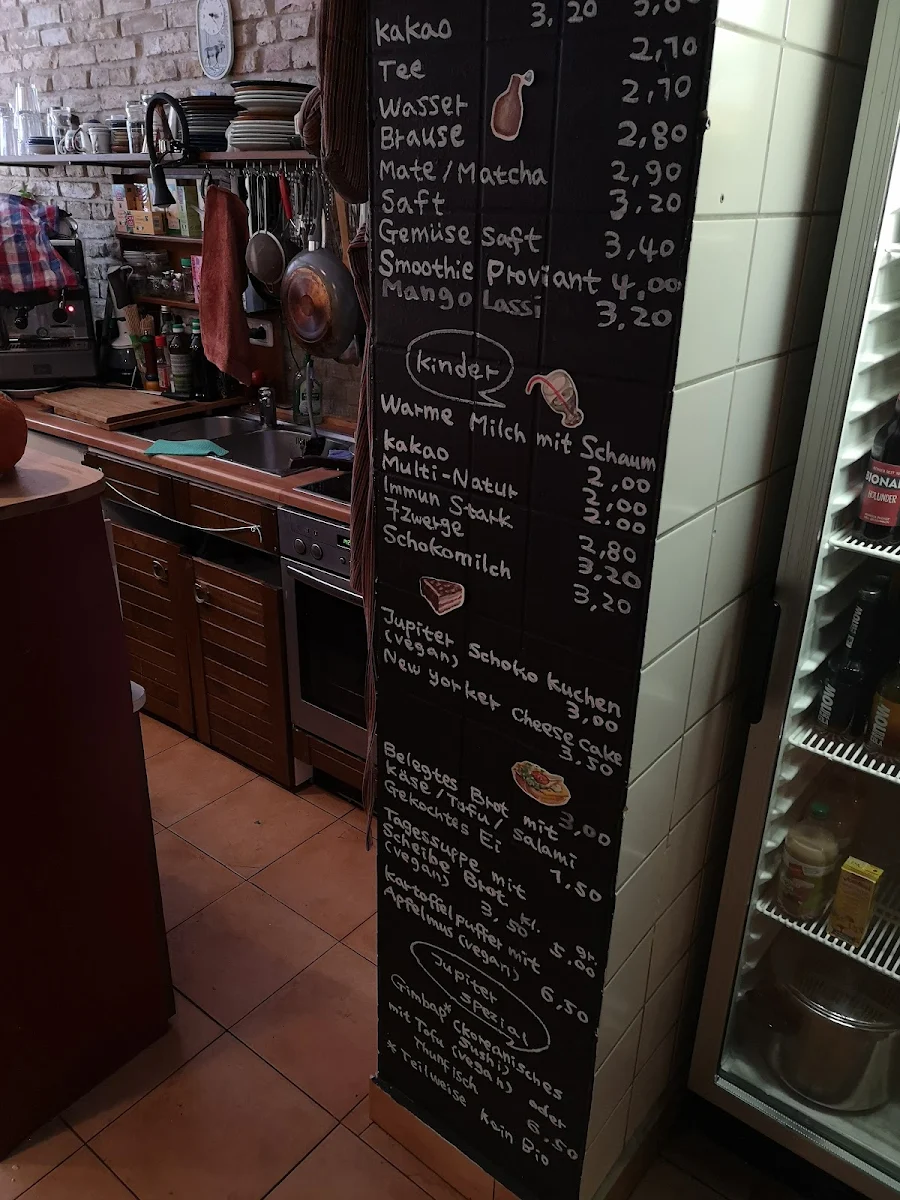 kakao 3,20
Tee 2,70
Wasser 2,70
Brause 2,80
Mate / Matcha 2,90
Saft 3,20
Gemüse Saft 3,40
Smoothie Proviant 4,00
Mango Lassi 3,20
kinder
Warme Milch mit Schaum
2,00
kakao 2,00
Multi-Natur 2.00
Immun Stark 2,80
7Zwerge 3,20
Schokomilch 3,20
Jupiter Schoko kuchen
(vegan) 3,00
New yorker Cheese cake
3.50
Belegtes Brot mit 3,00
Käse / Tofu / Salami
Gekochtes Ei 1.50
Tagessuppe mit
Scheibe Brot kl. gr.
(vegan) 3,50 5.00
kartoffelpuffer mit
Apfelmus (vegan) 6,50
Jupiter
Spezial
Gimbap* (koreanisches
Sushi)
mit Tofu (vegan) oder
Thunfisch 6.50
* Teilweise kein Bio
HOLUNDER